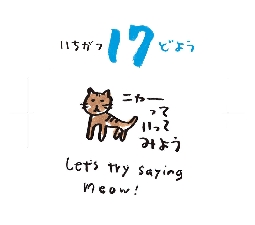 いちがつ 17 どよう
ニャー
って
いって
みよう
Let's try saying
meow!